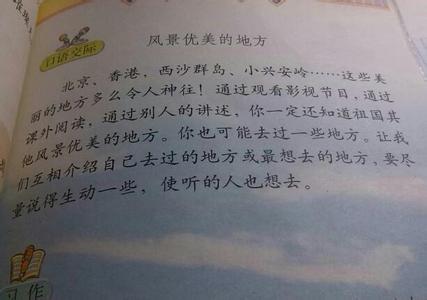 口语交际
风景优美的地方
北京、香港，西沙群岛、小兴安岭……这些美
丽的地方多么令人神往！通过观看影视节目，通过
课外阅读，通过别人的讲述，你一定还知道祖国其
他风景优美的地方。你也可能去过一些地方。让我
们互相介绍自己去过的地方或最想去的地方，要尽
量说得生动一些，使听的人也想去。
习作